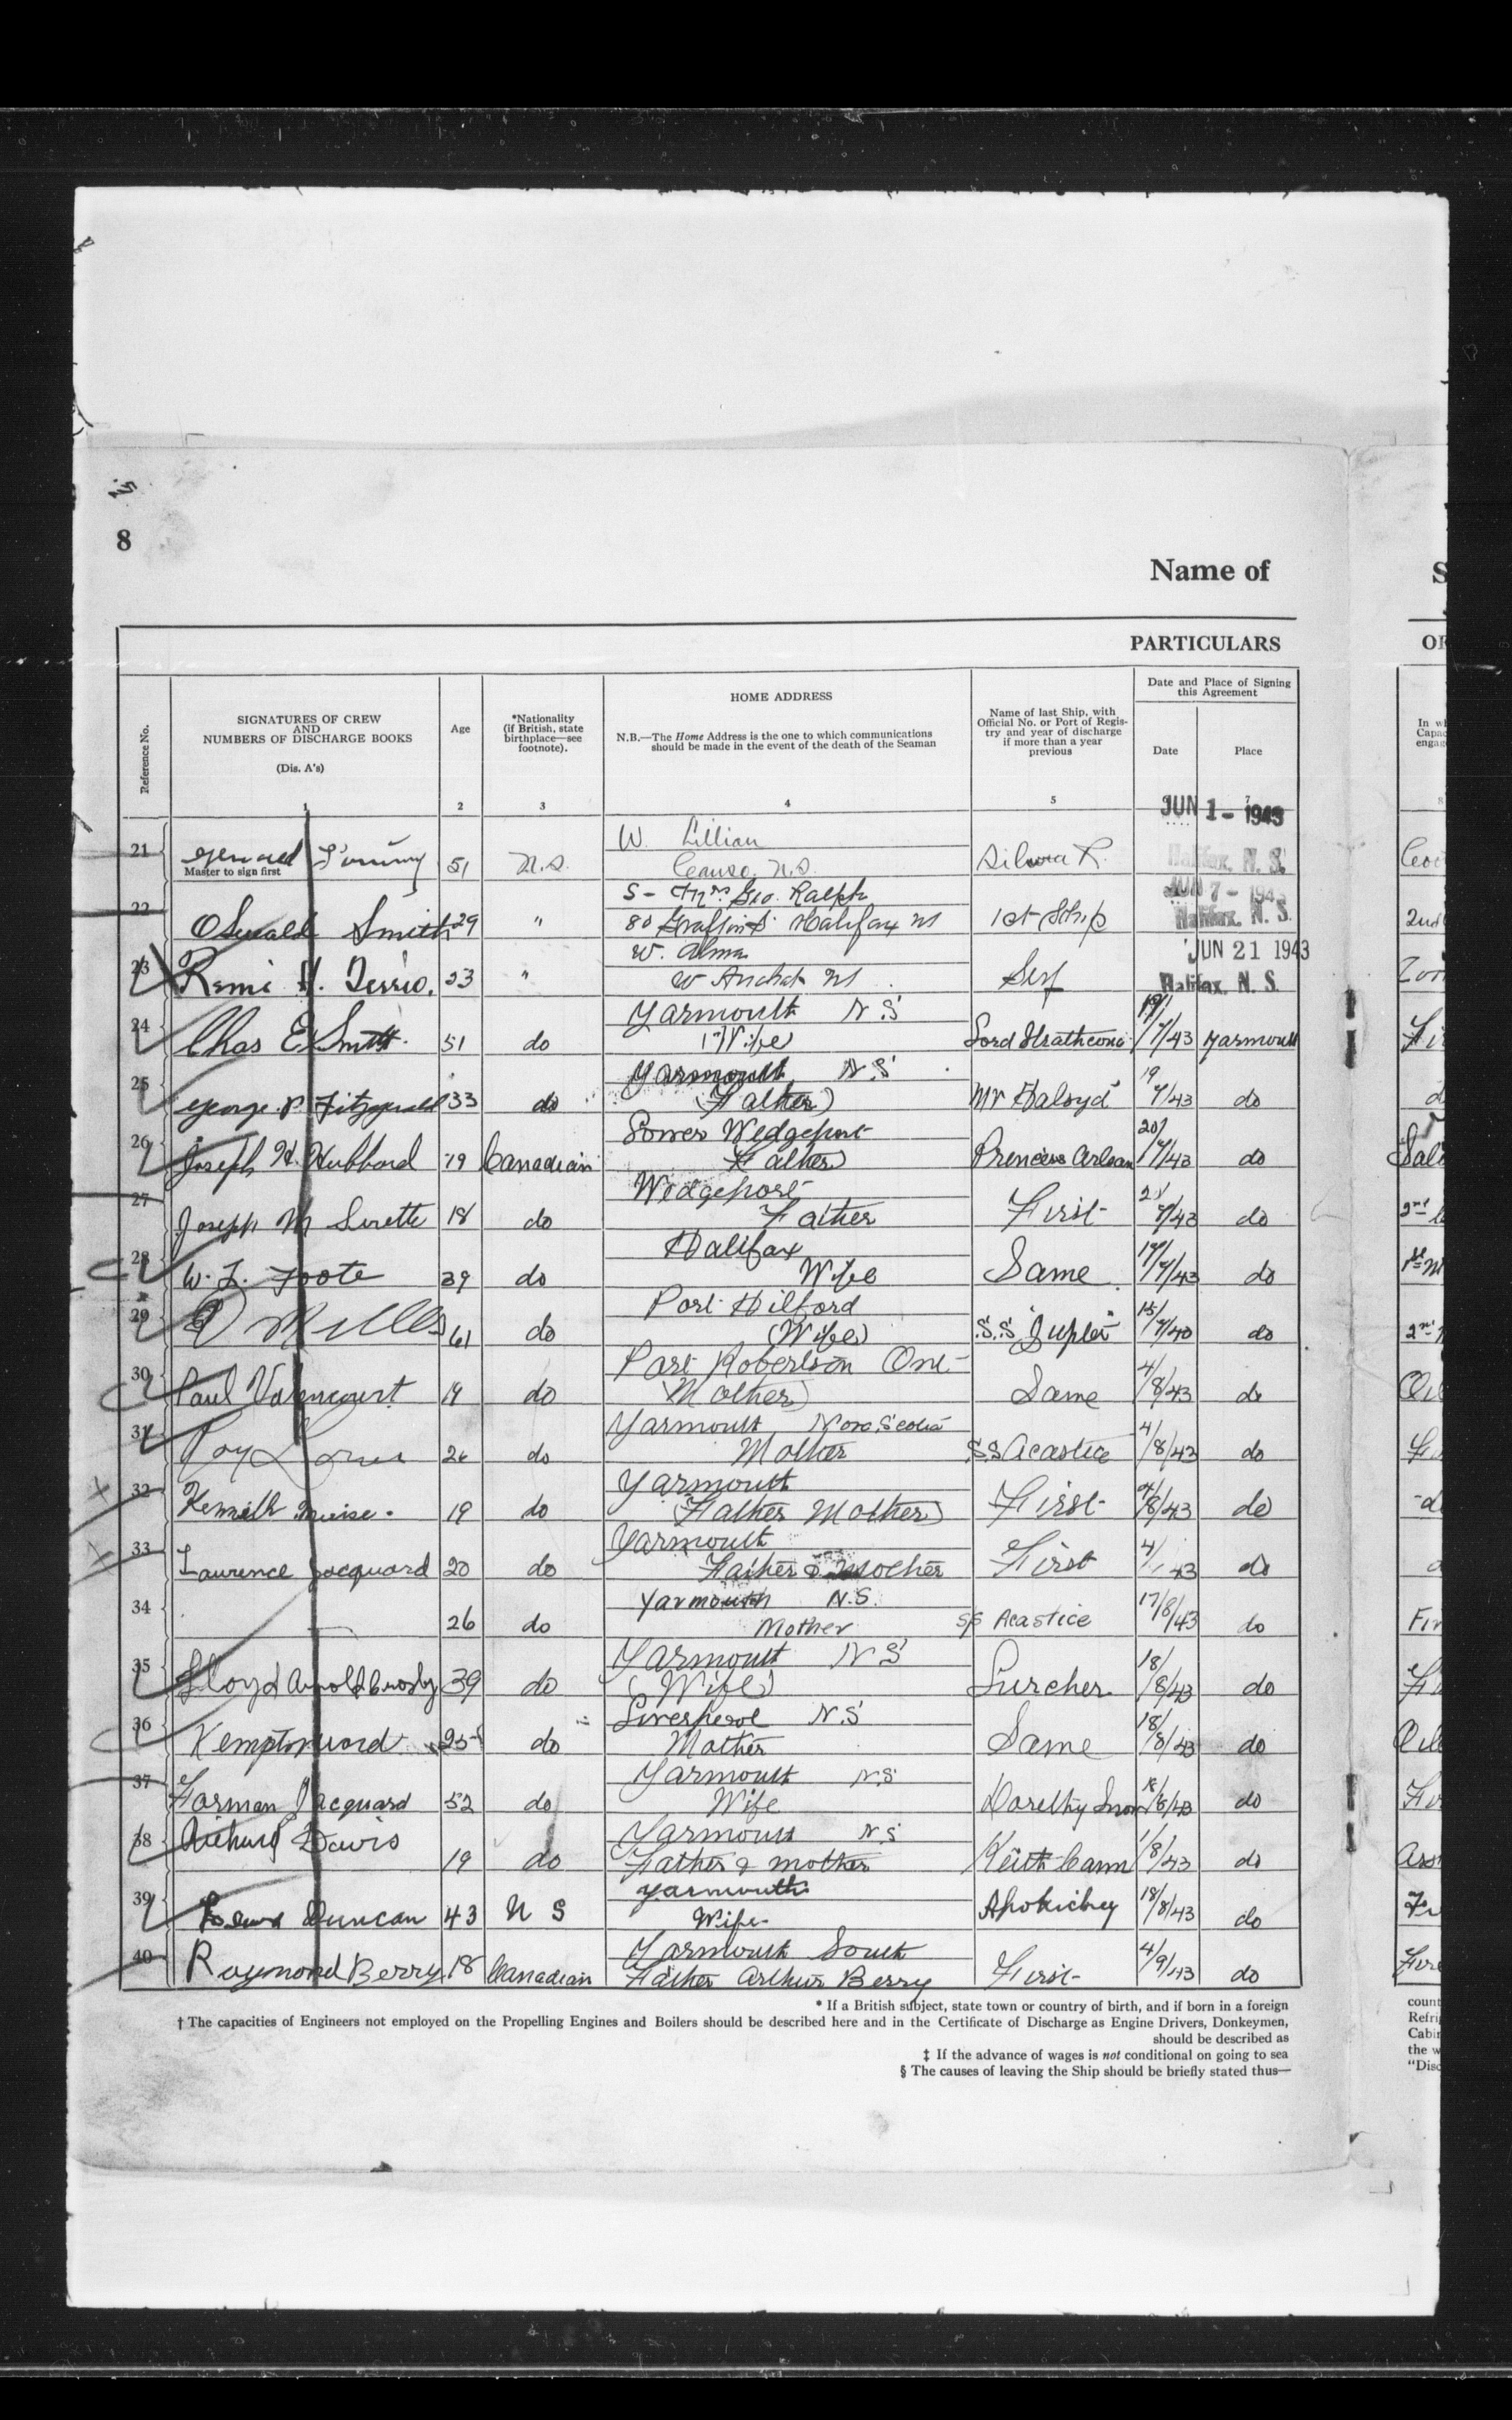 8
Name of
S
PARTICULARS
OF
Reference No.
SIGNATURES OF CREW
AND
NUMBERS OF DISCHARGE BOOKS
(Dis. A's)
Age
*Nationality
(if British, state
birthplace—see
footnote).
HOME ADDRESS
N.B.—The Home Address is the one to which communications
should be made in the event of the death of the Seaman
Name of last Ship, with
Official No. or Port of Regis-
try and year of discharge
if more than a year
previous
Date and Place of Signing
this Agreement
Date
Place
In wh
Capac
engag
1 2 3 4 5 7 8
JUN 1 - 1943
W. Lillian
21 51 N.S. Canso. N.S. Silvia L. Halifax, N. S.
Master to sign first
S - Mrs. Geo. Ralph JUN 7 - 1943
22 Oswald Smith 29 " 80 Halifax NS 1st Ship Halifax, N. S. 2nd
W. Alma JUN 21 1943
23 Remi H. Terrio. 23 " W Arichat NS Halifax, N. S.
Yarmouth N.S 19/
24 Chas E Smith 51 do (Wife) Lord Strathcona 7/43 Yarmouth
Yarmouth N.S 19
25 George P Fitzgerald 33 do (Father) 7/43 do
Lower Wedgeport 20/
26 Joseph H. Hubbard 19 Canadian Father) 7/43 do
Wedgeport
27 Joseph M Surette 18 do Father First 7/43 do
Halifax 17/
28 W. L. Foote 39 do Wife Same 7/43 do
Port Hilford 15/
29 61 do (Wife) S.S. Jupiter do
Port Robertson Ont 4/
30 Paul Valencourt 19 do Mother) Same 8/43 do
Yarmouth Nova Scotia 4/
31 Roy 26 do Mother S.S Acastice 8/43 do
Yarmouth 4/
32 Kenneth Muise. 19 do (Father Mother) First 8/43 do
Yarmouth 4/
33 Laurence Jacquard 20 do Father & Mother First 43 do
Yarmouth N.S.
34 — 26 do Mother S/S Acastice 17/8/43 do
Yarmouth N S 18/
35 Lloyd Arnold Crosby 39 do (Wife) Lurcher 8/43 do
Liverpool N.S 18/
36 Kempton 25 do Mother Same 8/43 do
Yarmouth N.S 18/
37 Forman Jacquard 52 do Wife Dorothy Snow 8/43 do
Yarmouth N.S
38 Richard Davis 19 do Father & mother Keith Cann 8/43 do
Yarmouth
39 Duncan 43 N S Wife 18/8/43 do
Yarmouth South
40 Raymond Berry 18 Canadian Father Arthur Berry First 4/9/43 do
* If a British subject, state town or country of birth, and if born in a foreign
† The capacities of Engineers not employed on the Propelling Engines and Boilers should be described here and in the Certificate of Discharge as Engine Drivers, Donkeymen,
should be described as
‡ If the advance of wages is not conditional on going to sea
§ The causes of leaving the Ship should be briefly stated thus—
count
Refri
Cabin
the w
"Disc